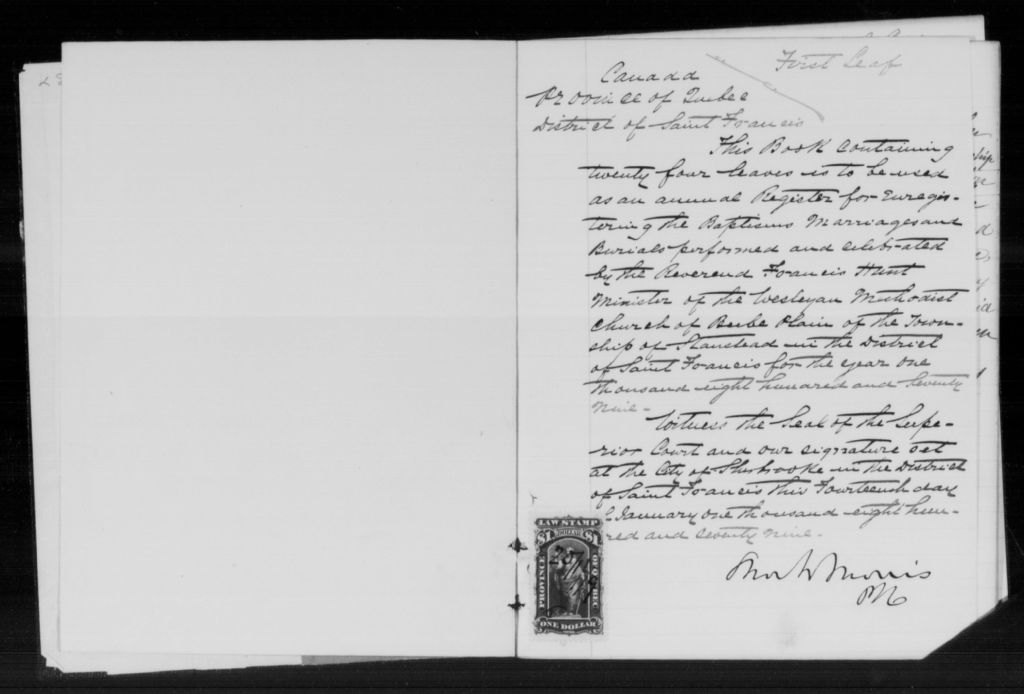 First Leaf
Canada
Province of Quebec
District of Saint Francis
This Book containing
twenty four leaves is to be used
as an annual Register for Enregis-
tering the Baptisms Marriages and
Burials performed and celebrated
by the Reverend Francis Hunt
Minister of the Wesleyan Methodist
Church of Beebe Plain of the Town-
ship of Stanstead in the District
of Saint Francis for the year one
thousand eight hundred and seventy
nine-
Witness the Seal of the Supe-
rior Court and our signature set
at the City of Sherbrooke in the District
of Saint Francis this Fourteenth day
January one thousand eight hun-
red and seventy nine-
Morris
LAW STAMP
$1 DOLLAR $1
PROVINCE OF QUEBEC
ONE DOLLAR